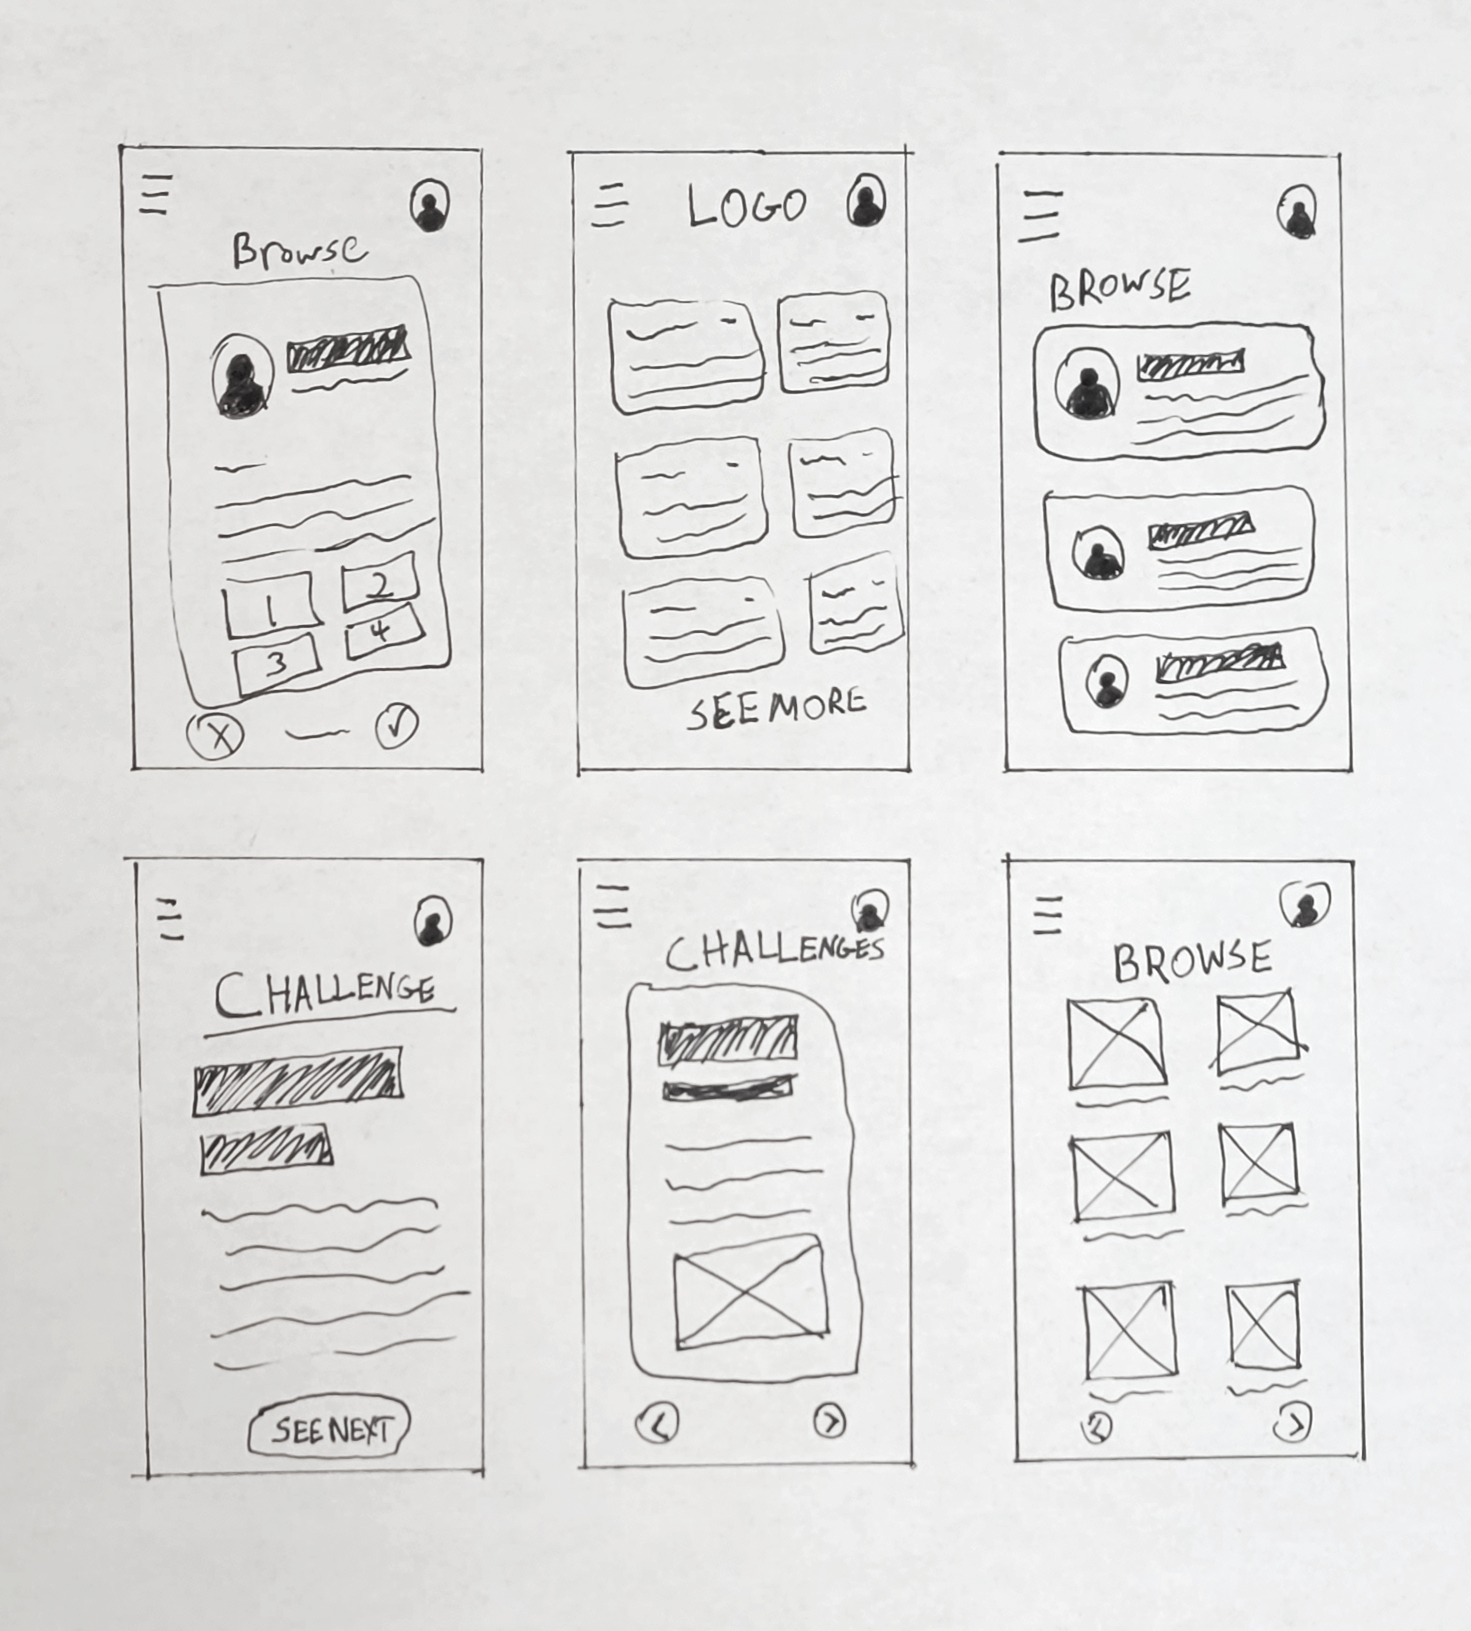 Browse
1
2
3
4
LOGO
SEE MORE
BROWSE
CHALLENGE
SEE NEXT
CHALLENGES
BROWSE